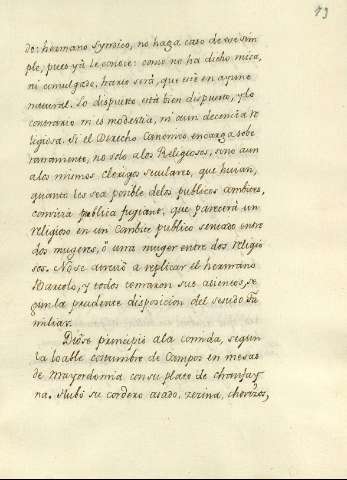 73
do: hermano Syndico, no haga caso de ese sim
ple, pues yà le conoce: como no ha dicho misa,
ni comulgado, harto será, que esté en ayuno
natural. Lo dispuesto, está bien dispuesto, y lo
contrario ni es modestia, ni aun decencia re
ligiosa. Si el Derecho Canonico encarga sobe
ranamente, no solo a los Religiosos, sino aun
a los mismos Clerigos seculares, que huian,
quanto les sea posible de los publicos combites,
convivia publica fugiant, que parecerá un
religioso en un Combite publico sentado entre
dos mugeres, ô una muger entre dos religio
sos. No se atreviò a replicar el hermano
Bartolo, y todos tomaron sus asientos, se
gun la prudente disposicion del sesudo Fa
miliar.
Diòse principio a la comida, segun
la loable costumbre de Campos en mesas
de Mayordomia con su plato de chanfay
na. Hubo su cordero asado, zezina, chorizos,